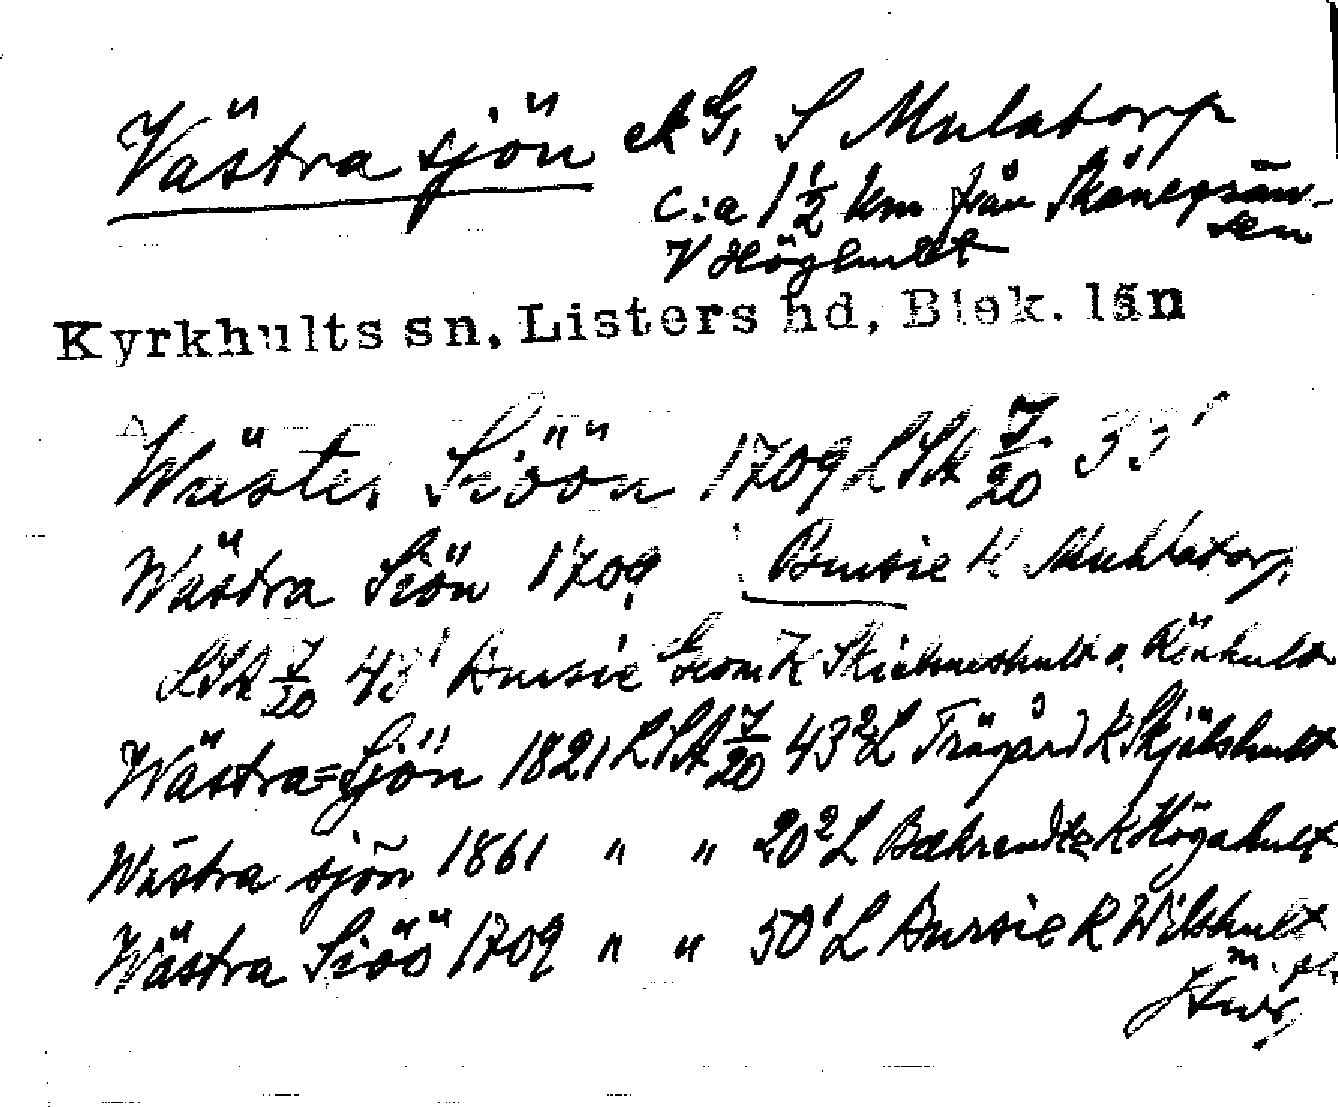 Västra sjön ek G, S Mulatorp
c:a 1 1/2 km från Skånegrän-
sen
V Höghult
Kyrkhults sn, Listers hd, Blek. län
Wäster Siöön 1709 LSA 7/20 33¹
Wästra Siön 1709 Bursie K Mullatorp
LSA 7/20 43¹ Bursie Geom K Skielmeshult o. Rönhult
Wästra=Sjön 1821 LSA 7/20 43² L Trägård K Skjälshult
Wästra sjön 1861 " " 20² L Bæhrendtz K Högahult
Wästra Siöö 1709 " " 50¹ L Bursie K Wilshult
m. fl.